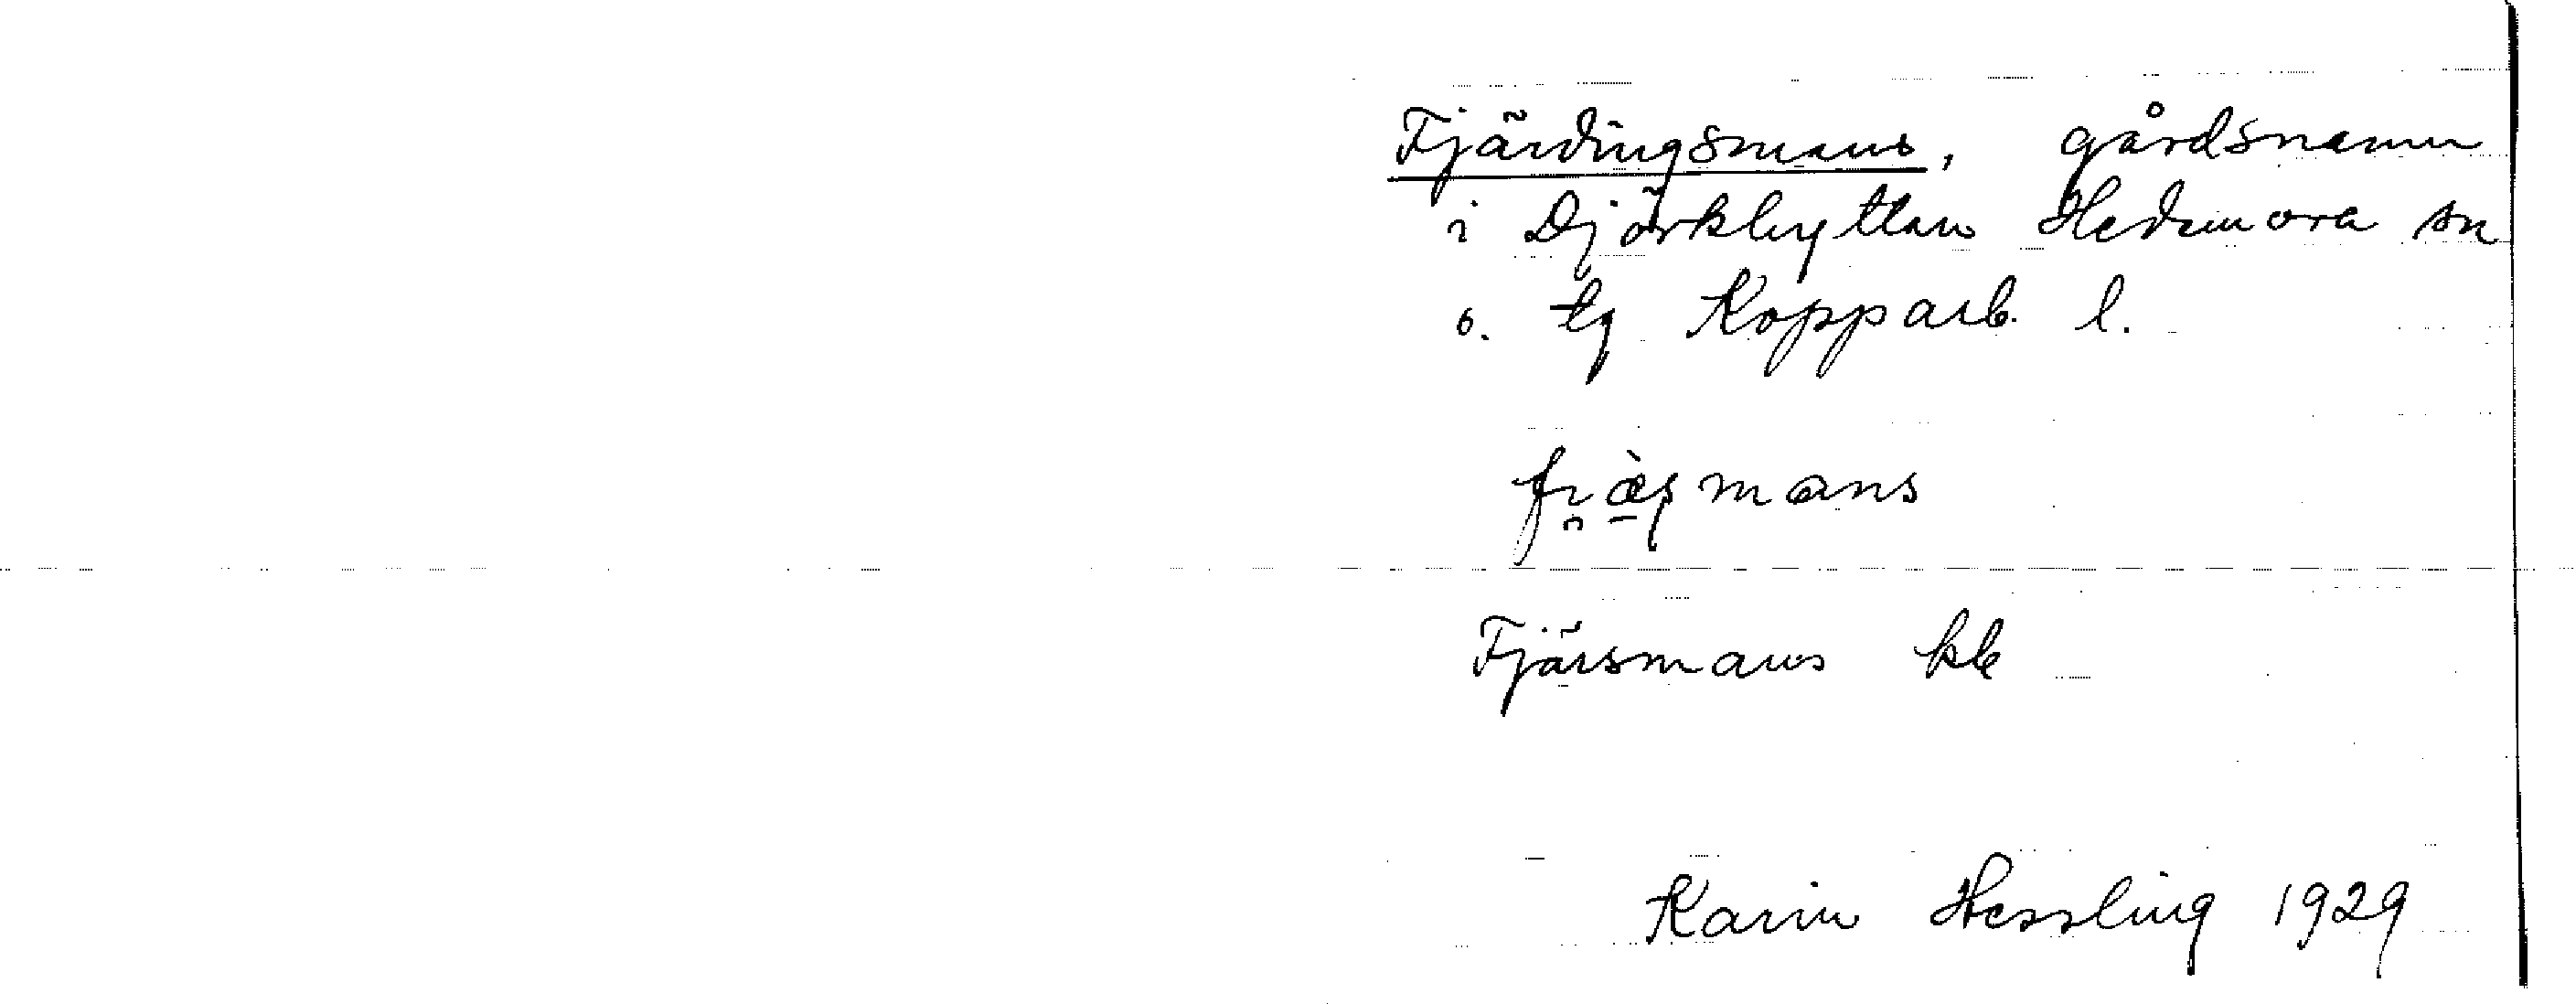 Fjärdingsmans, gårdsnamn
i Djörkhyttan Hedemora sn
o. tg Kopparb. l.
fi̯æ̀ʂmans
Fjärsmans kb
Karin Hessling 1929